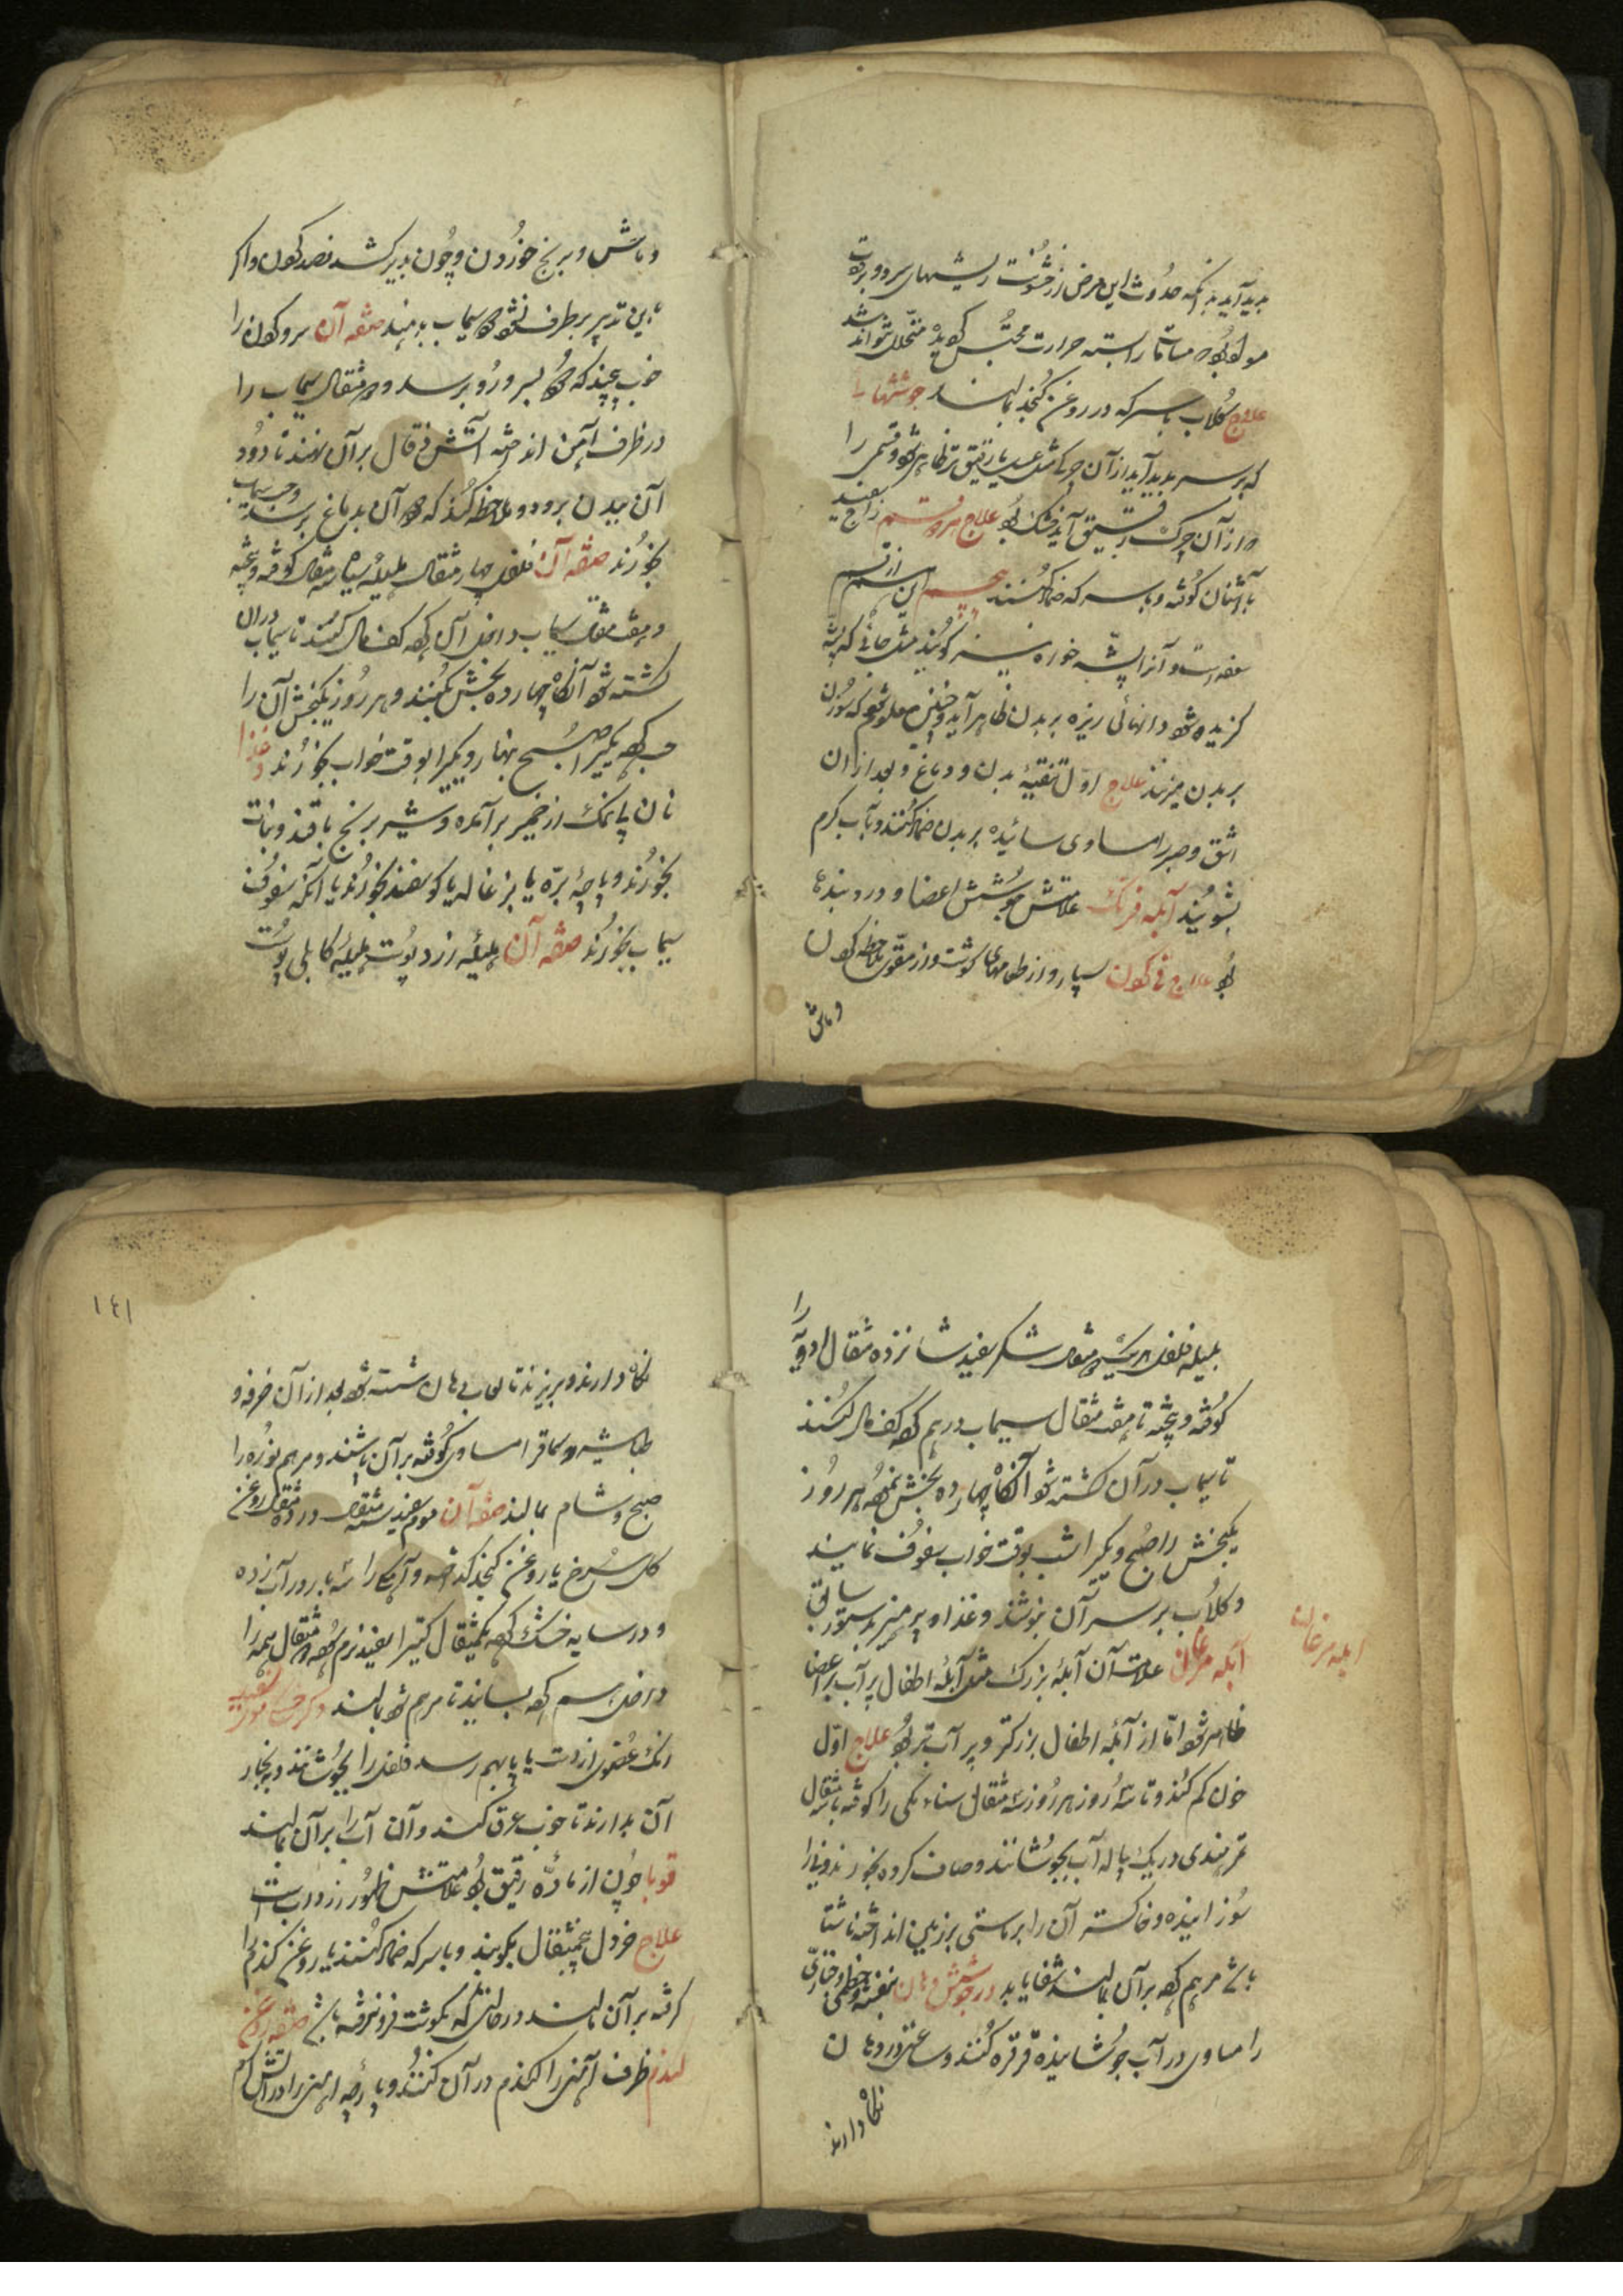 پدید آید بدانکه حدوث این مرض از خشونت ریشهای سر و برودت
هوا بود مسامات را بسته حرارت محتبس گردید متحلل نتواند شد
علاج گلاب با سرکه در روغن کنجد بمالند جوششها
که بر سر پدید آید از آن چرکی مثل عسل یا رقیق تر ظاهر شود و قسمی را
از آن چرک رقیق آید خشک بود علاج هر دو قسم زاج سفید
با اشنان کوفته و با سرکه ضماد کنند این از قسم
سعفه است و آنرا پشه خوره نیز گویند مثل جائی که پشه
گزیده شود دانهائی ریزه بر بدن ظاهر آید و چنین معلوم شود که سوزن
بر بدن میزنند علاج اول تنقیهٔ بدن و دماغ و بعد از آن
اشق و صبر را مساوی سائیده بر بدن ضماد کنند و بآب گرم
بشویند آبله فرنگ علامتش جوشش اعضا و درد بندها
بود علاج قی کردن بسیار و از طعامهای گوشت و از مقوی ملاحظه کردن
و ماش
و ماش و برنج خوردن و چون بدیر کشد فصد کردن و اگر
باین تدبیر برطرف نشود دود سیماب بدهند صفه آن سر و گردن را
خوب بپیچند که دود بسر و رو نرسد دو مثقال سیماب را
در ظرف آهن انداخته آتش زقال بر آن نهند تا دود
آن ببدن برود و ملاحظه کنند که دود آن بدماغ نرسد و حب سیماب
بخورند صفه آن فلفل چهار مثقال هلیلهٔ سیاه مثقال کوفته و بیخته
و هفت مثقال سیماب داخل آن کرده کف مال کنند تا سیماب در آن
کشته شود آنگاه چهارده بخش کنند و هر روز یکبخش آن را
حب کرده یکی را صبح نهار و یکی را بوقت خواب بخورند و غذا
نان بی نمک از خمیر برآمده و شیر برنج با قند و نبات
بخورند و پاچهٔ بره یا بزغاله یا گوسفند بخورند یا آنکه سفوف
سیماب بخورند صفه آن هلیلهٔ زرد پوست هلیلهٔ کابلی پوست
بلیله فلفل هر یک مثقال شکر سفید شانزده مثقال ادویه را
کوفته و بیخته تا هفت مثقال سیماب درهم کرده کف مال کنند
تا سیماب در آن کشته شود آنگاه چهارده بخش نموده هر روز
یکبخش را صبح و یکی را شب بوقت خواب سفوف نمایند
و گلاب بر سر آن بنوشند و غذا و پرهیز بدستور سابق
آبله مرغان
آبله مرغان علامت آن آبلهٔ بزرگ مثل آبلهٔ اطفال پر آب بر اعضا
ظاهر شود اما از آبله اطفال بزرکتر و پر آب تر بود علاج اول
خون کم کنند و تا سه روز هر روز سه مثقال سناء مکی را کوفته با سه مثقال
تمر هندی در یک پیاله آب بجوشانند و صاف کرده بخورند و نی را
سوزانیده و خاکستر آن را بر ماستی بر زمین انداخته ناشتا
باشد مرهم کرده بر آن بمالند شفا یابد در جوشش دهان بنفشه و خطمی و خبازی
را مساوی در آب جوشانیده قرقره کنند و ساعتی در دهان
نگاه دارند
۱٤۱
نگاه دارند و بریزند تا لعاب دهان شسته شود بعد از آن خرفه و
طباشیر و سماق را مساوی کوفته بر آن پاشند و مرهم نوره را
صبح و شام بمالند صفه آن موم سفید سه مثقال در ده مثقال روغن
گل سرخ یا روغن کنجد گداخته و آهک را سه بار در آب زده
و در سایه خشک کرده یکمثقال کتیرا سفید نرم کرده دو مثقال همه را
داخل هم کرده بسایند تا مرهم شود بمالند
رنگ عضوی از دست یا پا بهم رسد فلفل را بجوشانند و ببخار
آن بدارند تا خوب عرق کند و آن آب را بر آن بمالند
قوبا چون از ماده رقیق بود علامتش ظهور زرداب است
علاج خردل پنج مثقال بکوبند و با سرکه ضماد کنند یا روغن گندم را
گرفته بر آن بمالند در حالتی که بگوشت فرو نرفته باشد صفه روغن
گندم ظرف آهنی را گندم در آن کنند و پارچه آهنی را در آتش گرم